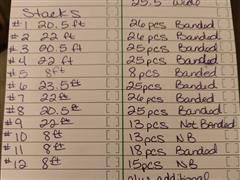 25.5 Wide
Stacks
#1 20.5 ft 26pcs Banded
#2 22 ft 26pcs Banded
#3 20.5 ft 25pcs Banded
#4 22 ft 25pcs Banded
#5 8ft 8pcs Banded
#6 23.5ft 25pcs Banded
#7 22ft 26pcs Banded
#8 20.5ft 25pcs Banded
#9 22ft 13pcs Not Banded
#10 8ft 13pcs NB
#11 8ft 18pcs Banded
#12 8ft 15pcs NB
additional